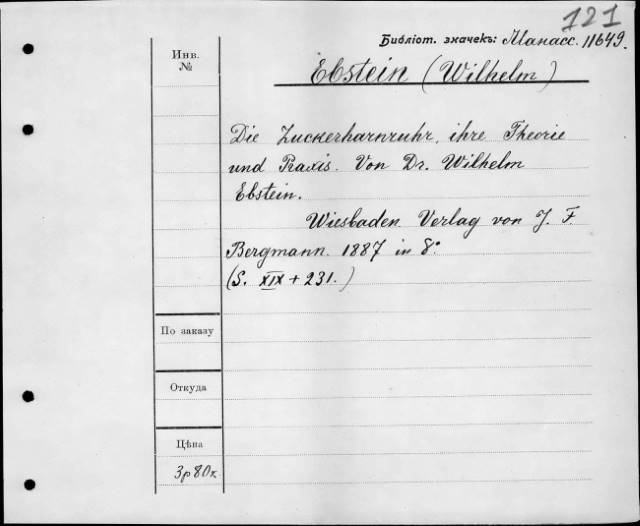 121
Библіот. значекъ: Манасс. 11649.
Инв.
№
Ebstein (Wilhelm)
Die Zuckerharnruhr, ihre Theorie
und Praxis. Von Dr. Wilhelm
Ebstein.
Wiesbaden. Verlag von J. F.
Bergmann. 1887 in 8°
(S. XIX + 231.)
По заказу
Откуда
Цѣна
3р80к.